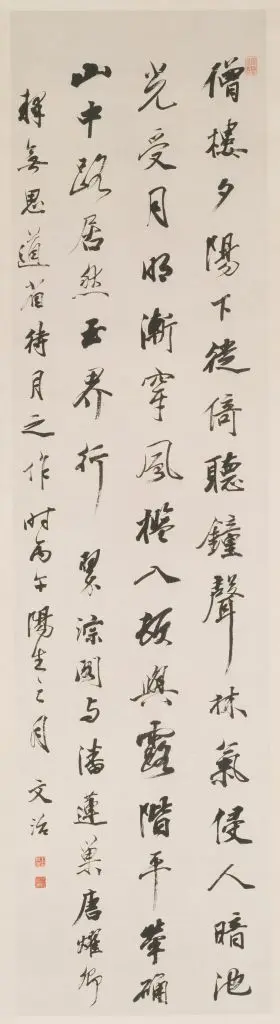 僧樓夕陽下徙倚聽鐘聲林氣侵人暗池
光受月明漸穿風檻入頓與露階平犖确
山中路居然玉界行 翠淙閣与潘蓮巢唐耀卿
釋無思道待月之作时丙午陽生之月 文治